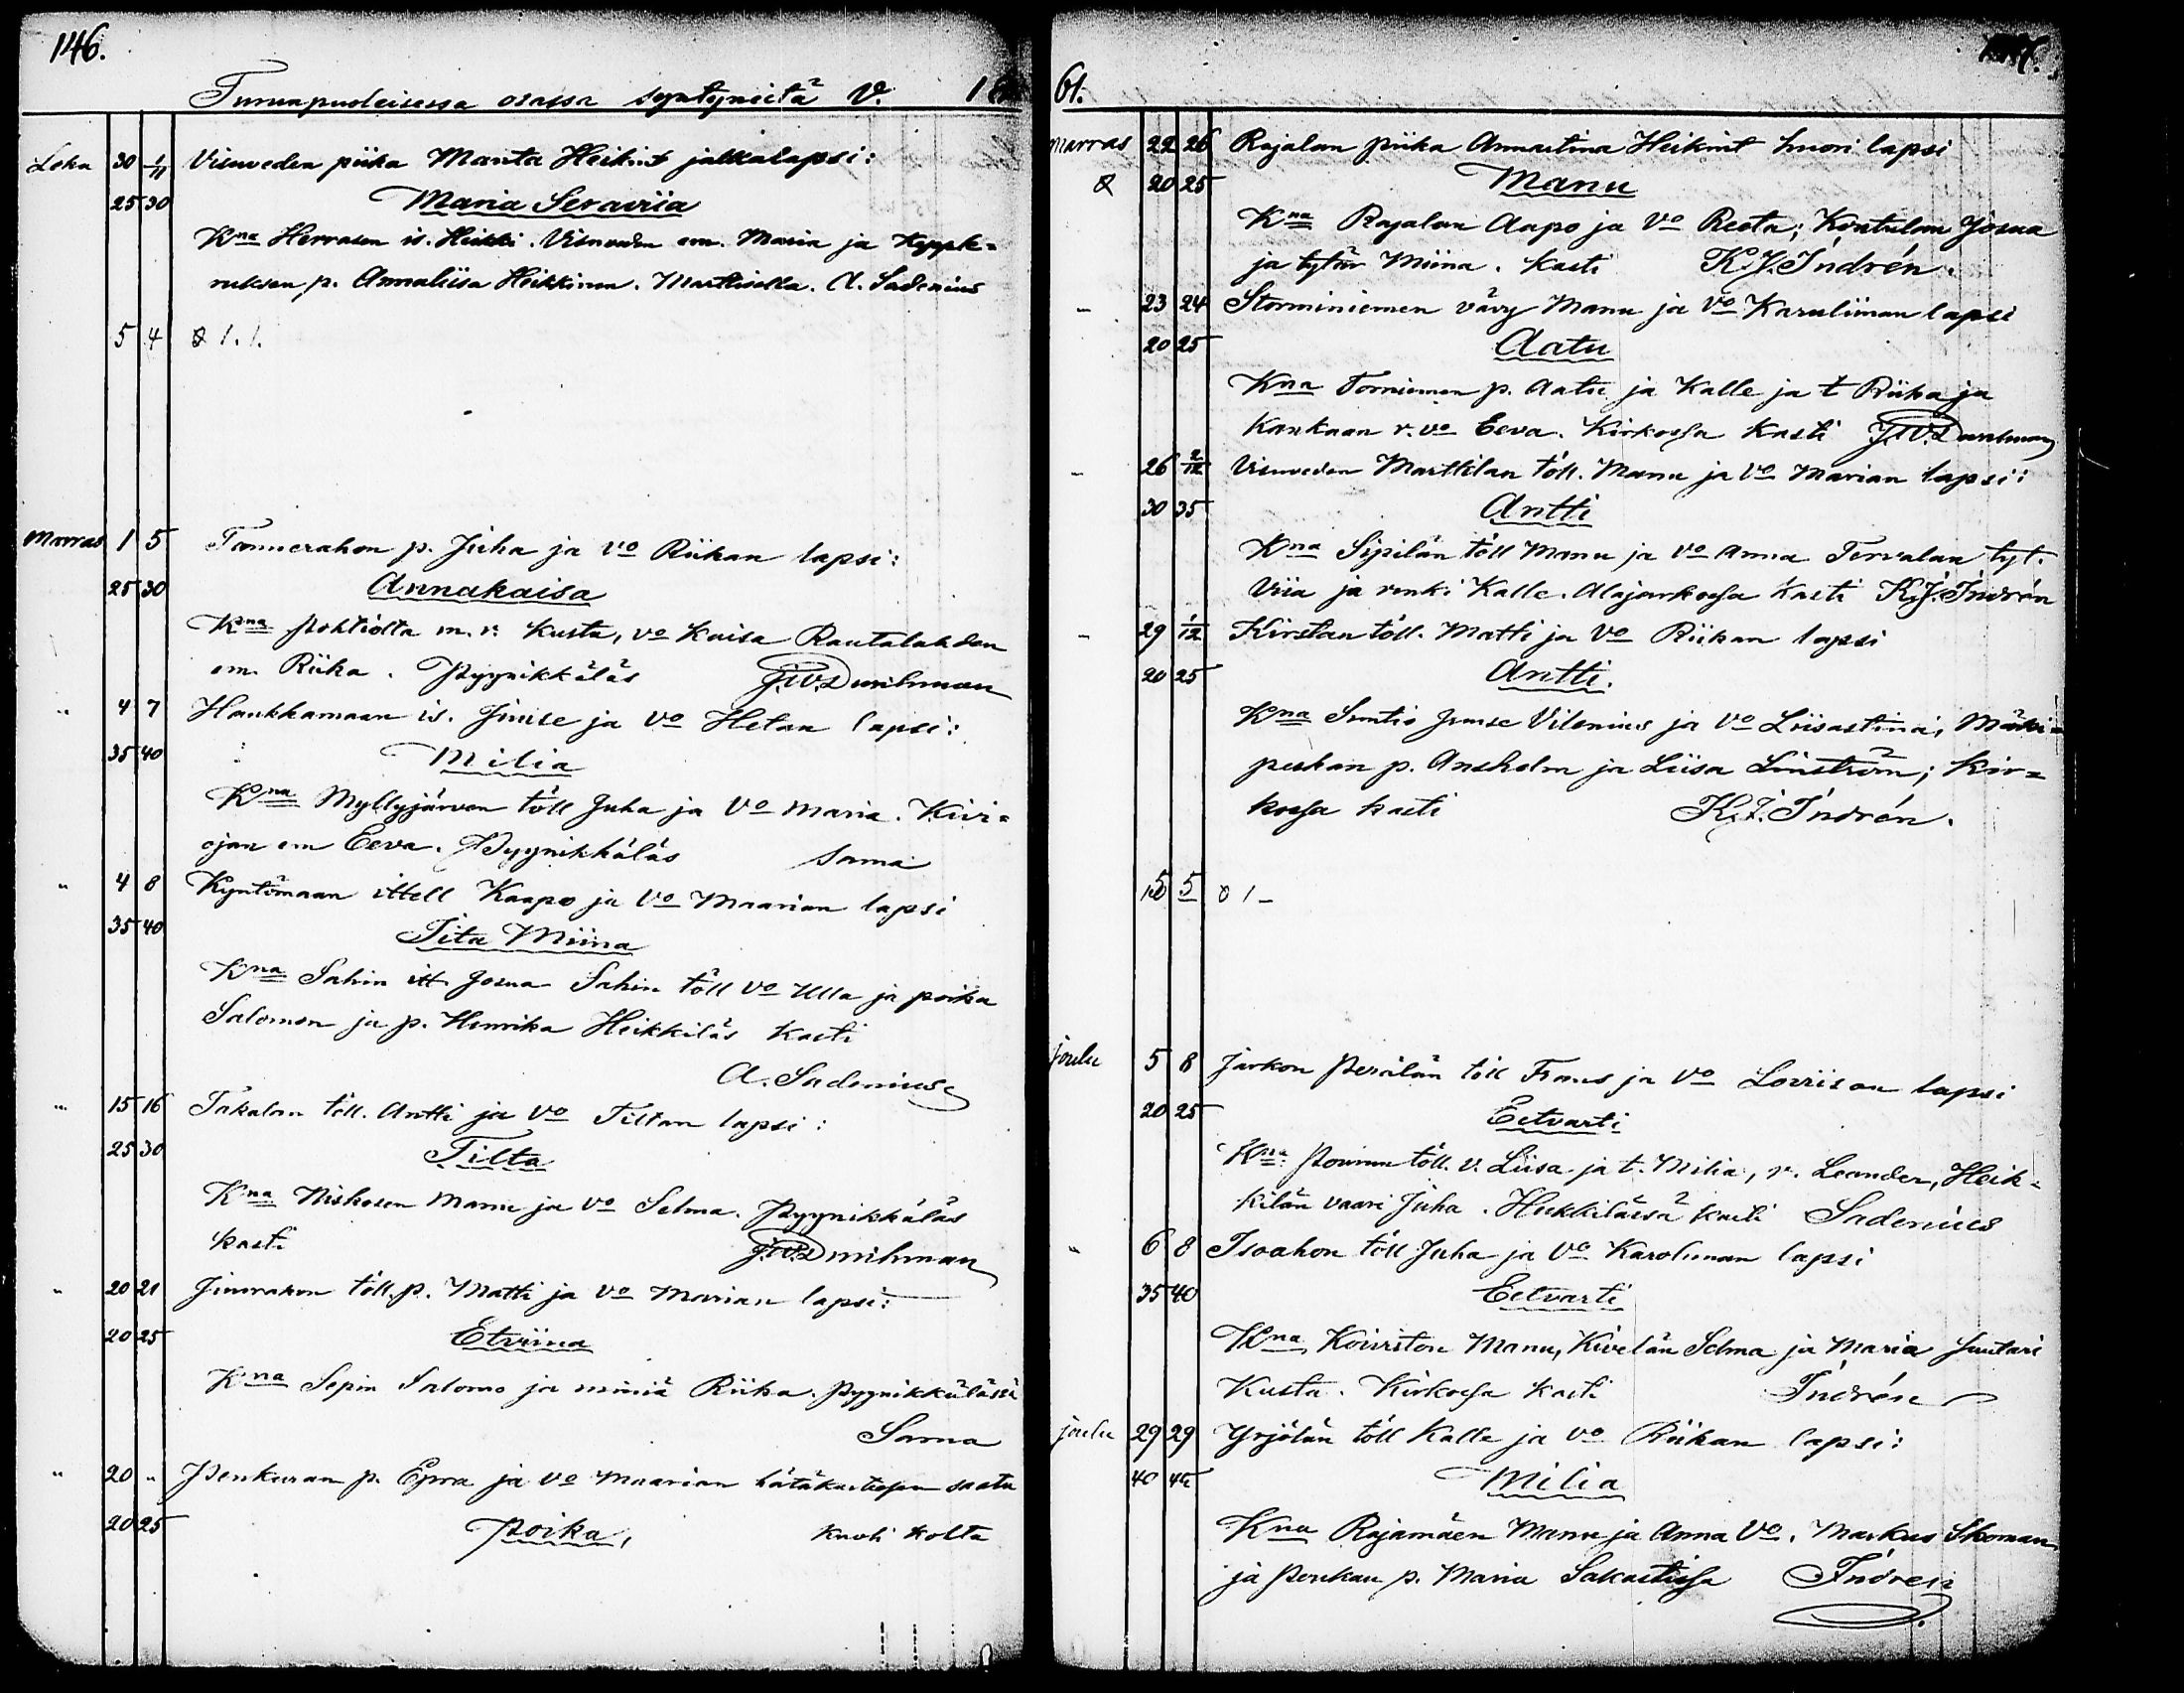 146.
Turunpuoleisessa osassa syntyneitä V. 18
Loka 30 1/11 Visuveden piika Manta Heikint jalkalapsi:
25 30 Maria Seraviia
Kna Herrasen is. Heikki. Visuveden em. Maria ja
p. Annaliisa Heikkinen. Marttisella. A. Sadenius
5 4
Marras 1 5 Tannerahon p. Juha ja vo Riikan lapsi:
25 30 Annakaisa
Kna m. r. Kusta, vo Kaisa Rautalahden
em. Riika. Pyynikkäläs J.W. Durchman
" 4 7 Haukkamaan is. Juuse ja vo Hetan lapsi:
35 40 Milia
Kna Myllyjärven töll Juha ja Vo Maria. Kivi=
ojan em Eeva. Pyynikkäläs Sama
" 4 8 Kyntömaan ittell Kaapo ja Vo Maarian lapsi
35 40 Iita Miina
Kna Sahin itt Josua Sahin töll vo Ulla ja poika
Salomon ja p. Henrika Heikkiläs kasti
A. Sadenius
" 15 16 Takalan töll. Antti ja Vo Tiltan lapsi:
25 30 Tilta
Kna Niskosen Manu ja vo Selma. Pyynikkäläs
kasti J.W. Durchman
" 20 21 töll. p. Matti ja vo Marian lapsi:
20 25 Etviina
Kna Sepin Salomo ja miniä Riika. Pyynikkälässä
Sama
" 20 " Penkuran p. Epra ja vo Maarian hätäkasteesen saatu
20 25 Poika, kuoli kolta
61.
Marras 22 26 Rajalan piika Annastina Heikint huori lapsi
20 25 Manu
Kna Rajalan Aapo ja Vo Reeta; Kontulan Josua
ja tytär Miina. Kasti K.J. Indrén.
" 23 24 Storminiemen vävy Manu ja Vo Karuliinan lapsi
20 25 Aatu
Kna Torniemen p. Aatu ja Kalle ja t Riika ja
Kankaan r. vo Eeva. Kirkossa kasti J.W. Durchman
" 26 2/12 Visuveden Marttilan töll. Manu ja Vo Marian lapsi:
30 35 Antti
Kna Sipilän töll Manu ja vo Anna Tervalan tyt.
Viia ja renki Kalle. kasti K.J. Indrén
" 29 1/12 Kirstan töll. Matti ja Vo Riikan lapsi
20 25 Antti.
Kna Suntio Juuse Vilenius ja Vo Liisastiina; Mäki=
peskan p. Ansholm ja Liisa Linström; Kir=
kossa kasti K.J. Indrén.
5 5
Joulu 5 8 Jarkon Perälän töll Frans ja Vo Loviisan lapsi
20 25 Eetvarti
Kna töll. v. Liisa ja t. Milia, r. Leander, Heik=
kilän vaari Juha. Heikkilässä kasti Sadenius
" 6 8 Isoahon töll Juha ja Vo Karoliinan lapsi
35 40 Eetvarti
Kna Koiviston Manu, Kivelän Selma ja Maria Suutari
Kusta. Kirkossa kasti Indrén
joulu 29 29 Yrjölän töll Kalle ja vo Riikan lapsi:
40 45 Milia
Kna Rajamäen Manu ja Anna Vo. Markus Skoman
ja Penkan p. Maria Sakastissa Indrén